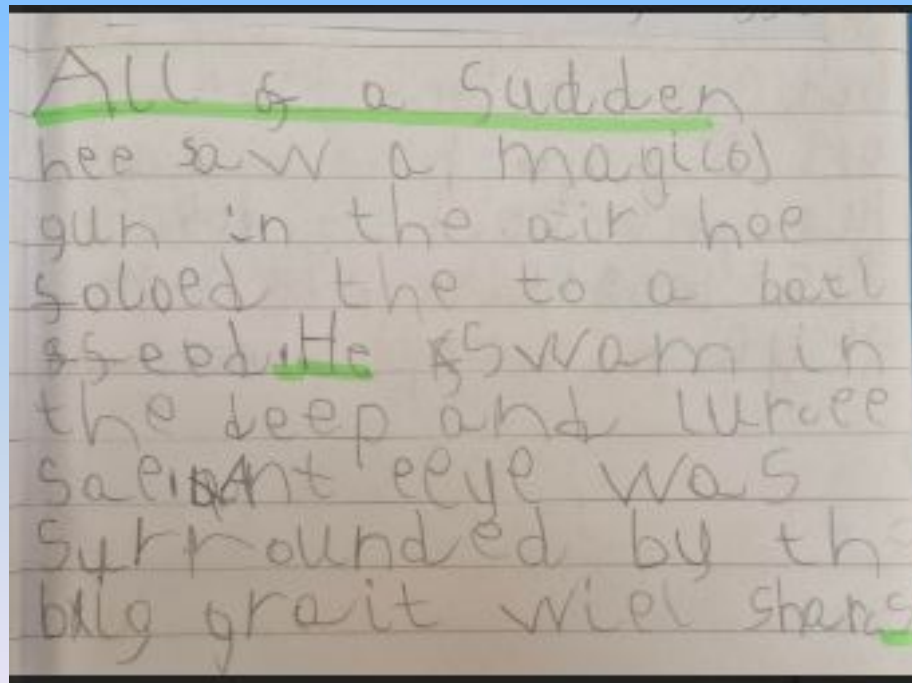 All of a Sudden
hee saw a magical
gun in the air hee
foloed the to a batl
feed. He swam in
the deep and
eeye was
surrounded by th
big grait wiet sharc